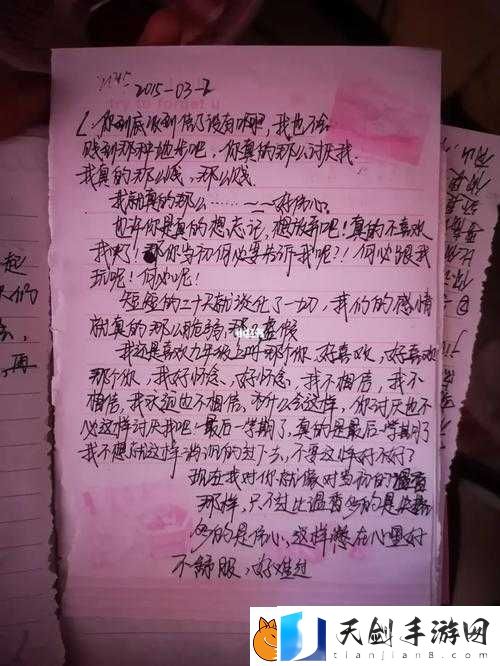 2015-03-2
try to forget u
你到底收到信了没有啊，我也不会
贱到那种地步吧，你真的那么讨厌我
我真的那么贱，那么贱.
我就真的那么……~~好伤心.
也许你是真的想忘记，想放弃吧！真的不喜欢
我啊！那你当初何必要告诉我呢？！何必跟我
玩呢！何必呢！
短短的二十天就淡化了一切，我们的感情
就真的那么脆弱，那么虚假
我还是喜欢九年级上册那个你，好喜欢，好喜欢
那个你，我好怀念，好怀念，我不相信，我不
相信，我永远也不相信，为什么会这样，你讨厌也不
必这样讨厌我吧！最后一学期了，真的是最后一学期了
我不想就这样的过下去，不要这样好不好了
现在我对你就像对当初的
那样，只不过比多的是
多的是伤心，这样憋在心里好
不舒服，好难过
起
们
再
天剑手游网
tianjian8.com